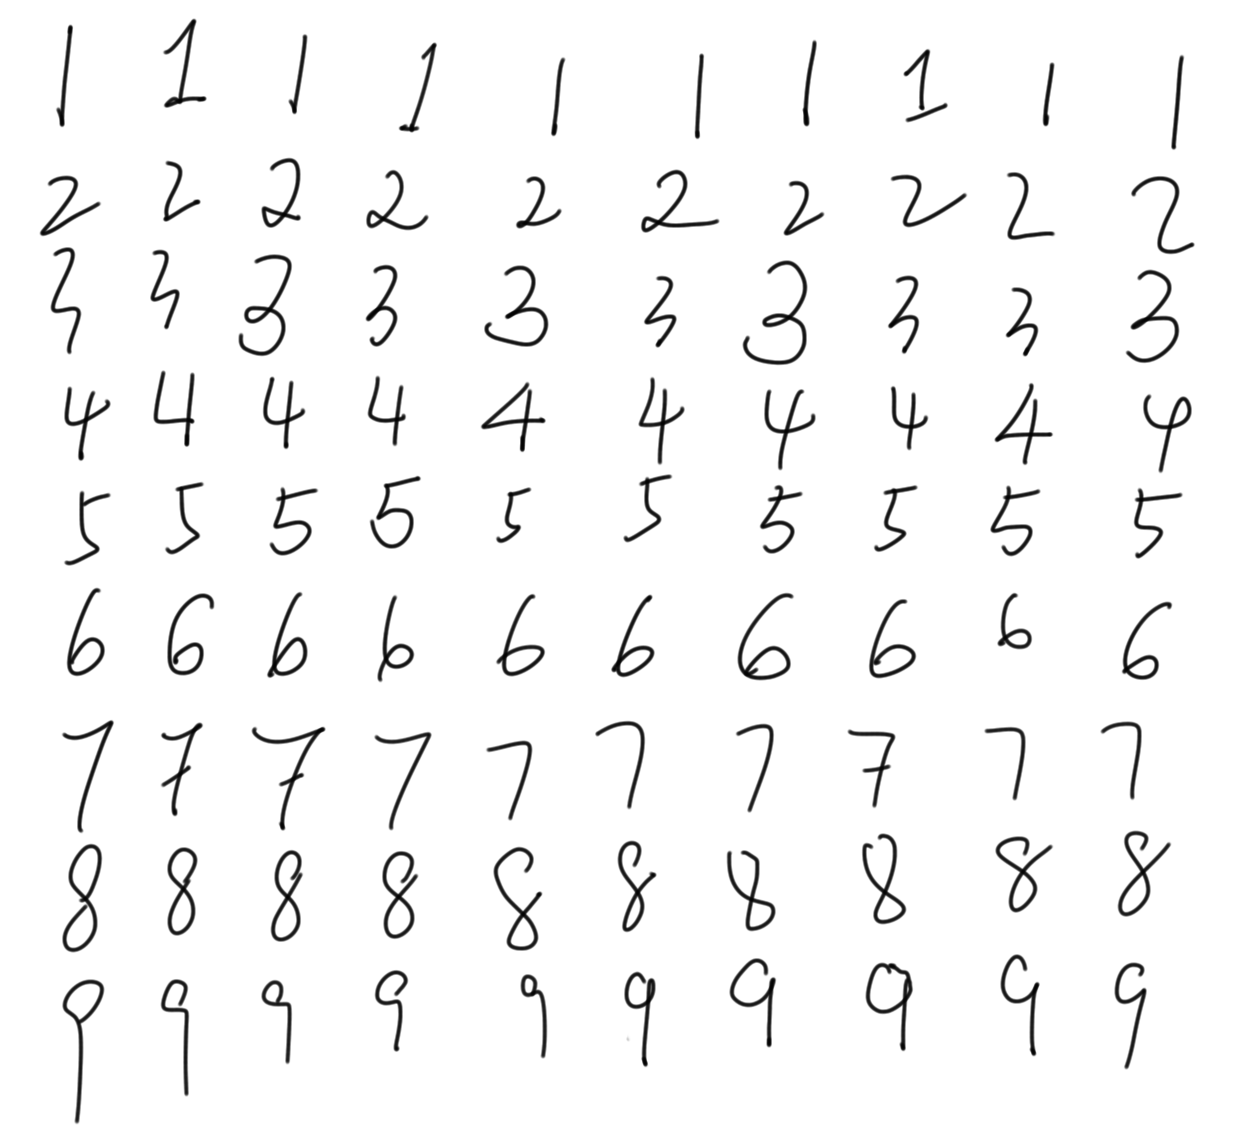 1 1 1 1 1 1 1 1 1 1
2 2 2 2 2 2 2 2 2 2
3 3 3 3 3 3 3 3 3 3
4 4 4 4 4 4 4 4 4 4
5 5 5 5 5 5 5 5 5 5
6 6 6 6 6 6 6 6 6 6
7 7 7 7 7 7 7 7 7 7
8 8 8 8 8 8 8 8 8 8
9 9 9 9 9 9 9 9 9 9